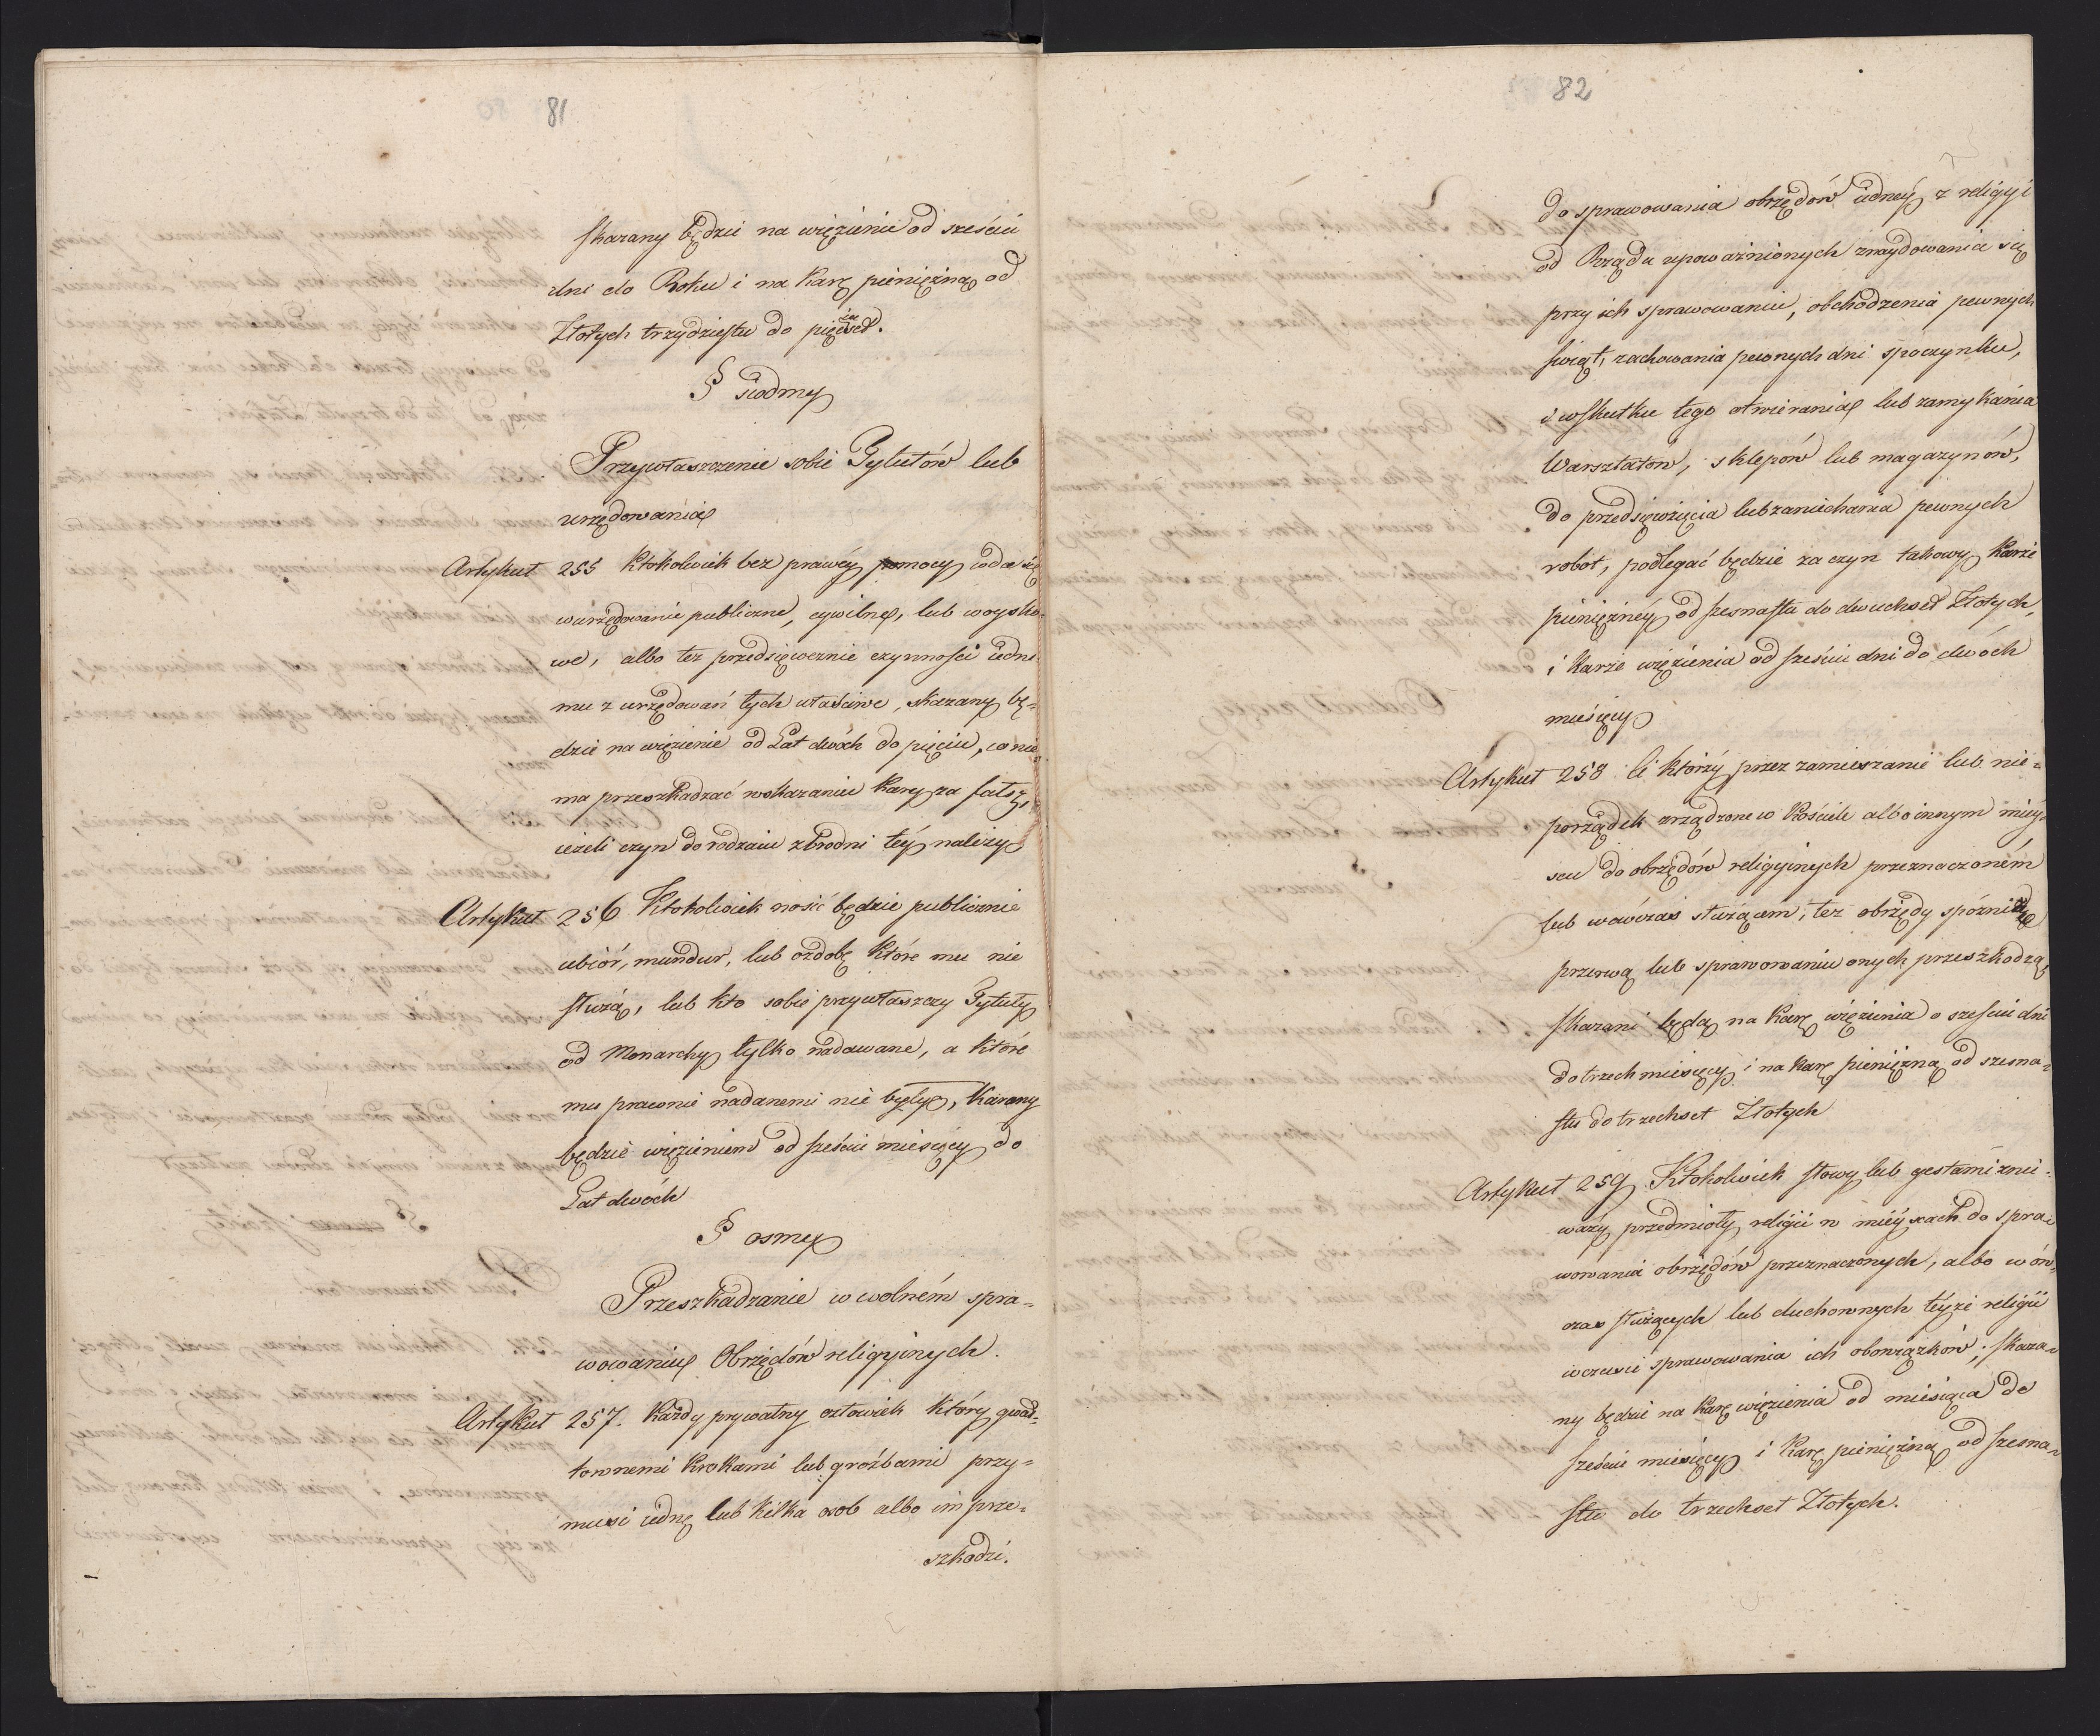 81
skazany będzie na więzienie od sześciu
dni do Roku i na karę pieniężną od
Złotych trzydziestu do pięciuset.
§ siodmy
Przywłaszczenie sobie Tytułów lub
urzędowania
Artykuł 255 Ktokolwiek bez prawéy pomocy wda się
w urzędowanie publiczne, cywilne, lub woysko-
we, albo tez przedsięweznie czynności iedne-
mu z urzędowań tych właściwe, skazany bę-
dzie na więzienie od Lat dwóch do pięciu, co nie
ma przeszkadzać wskazaniu kary za fałsz,
ieżeli czyn do rodzaiu zbrodni téy należy
Artykuł 256 Ktokolwiek nosić będzie publicznie
ubiór, mundur, lub ozdobę które mu nie
służą, lub kto sobie przywłaszczy Tytuły
od Monarchy tylko nadawane, a które
mu prawnie nadanemi nie były, karany
będzie więzieniem od sześciu miesięcy do
Lat dwóch
§ osmy
Przeszkadzanie w wolném spra-
wowaniu Obrzędów religyinych.
Artykuł 257. Każdy prywatny człowiek który gwał-
townemi krokami lub groźbami przy-
musi iednę lub kilka osob albo im prze-
szkodzi.
82
do sprawowania obrzędów iednéy z religyi
od Rządu upoważnionych znaydowania się
przy ich sprawowaniu, obchodzenia pewnych
świąt, zachowania pewnych dni spoczynku,
i w skutku tego otwierania lub zamykania
Warsztatów, sklepów lub magazynów,
do przedsięwzięcia lub zaniechania pewnych
robot, podlegać będzie za czyn takowy karze
pieniężnéy od szesnastu do dwuchset Złotych,
i karze więzienia od sześciu dni do dwóch
miesięcy
Artykuł 258 Ci którzy przez zamieszanie lub nie-
porządek zrządzone w kościele albo innym miey-
scu do obrzędów religyinych przeznaczoném
lub wówczas służącem, tez obrzędy spóźnią
przerwą lub sprawowaniu onych przeszkodzą,
skazani będą na karę więzienia o sześciu dni
do trzech miesięcy i na karę pieniężną od szesna-
stu do trzechset Złotych
Artykuł 259 Ktokolwiek słowy lub gestami znie-
waży przedmioty religii w mieyscach do spra-
wowania obrzędów przeznaczonych, albo w ów-
czas służących lub duchownych téyże religii
w czasie sprawowania ich obowiązków; skaza-
ny będzie na karę więzienia od miesiąca do
sześciu miesięcy i karę pieniężną od szesna-
stu do trzechset Złotych.